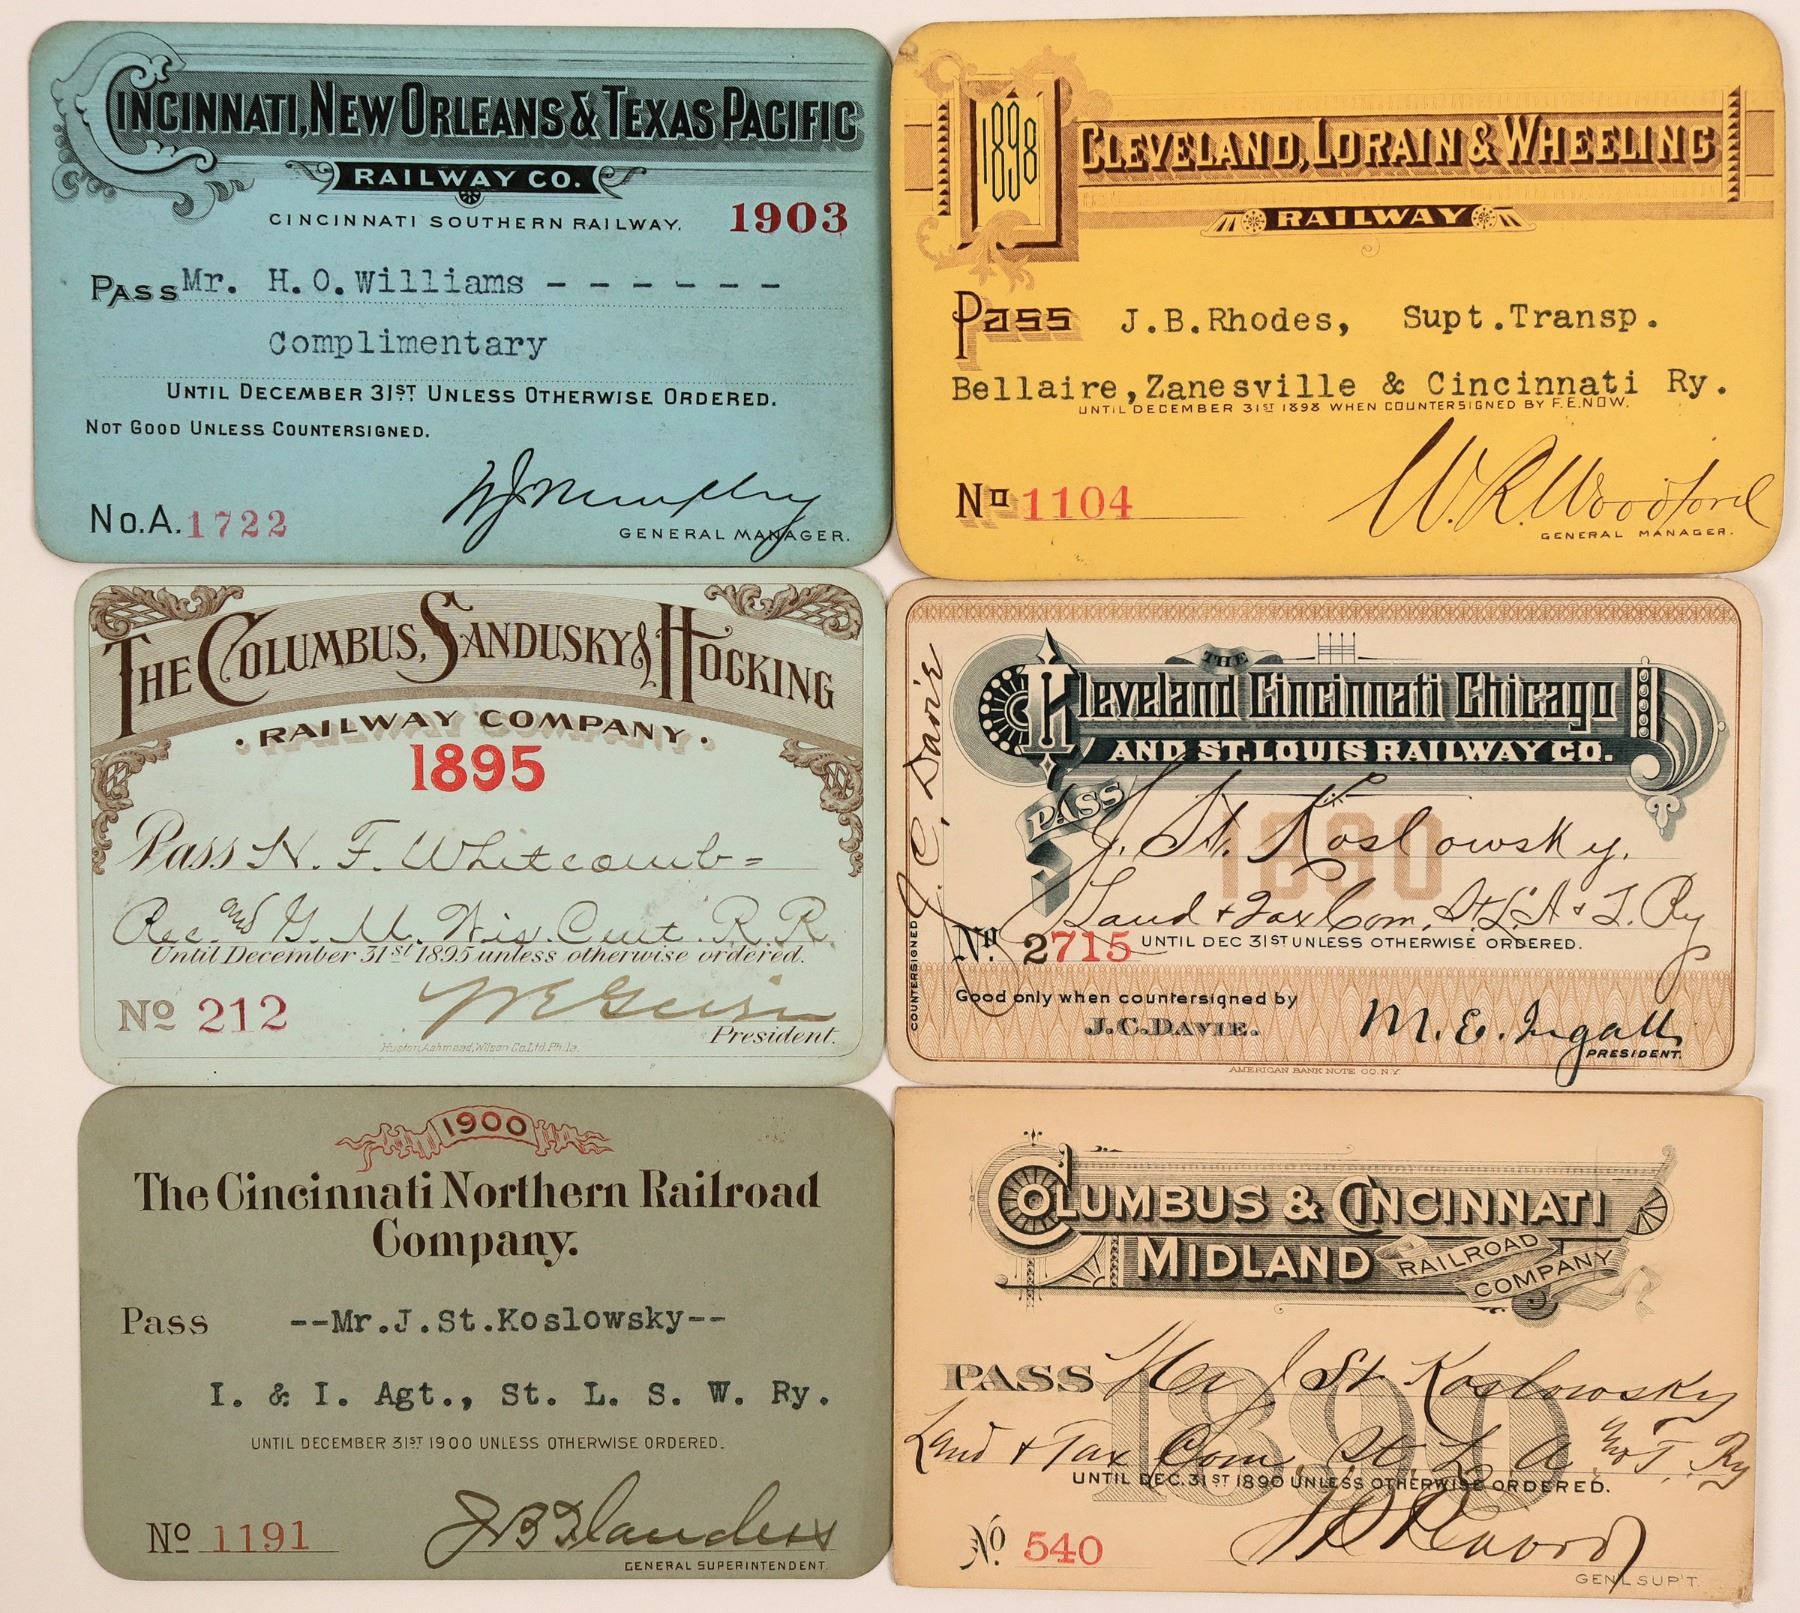 CINCINNATI, NEW ORLEANS & TEXAS PACIFIC
RAILWAY CO.
CINCINNATI SOUTHERN RAILWAY. 1903
PASS Mr. H.O.Williams - - - - - -
Complimentary
UNTIL DECEMBER 31ST UNLESS OTHERWISE ORDERED.
NOT GOOD UNLESS COUNTERSIGNED.
W J Murphy
No. A. 1722
GENERAL MANAGER.
1898
CLEVELAND, LORAIN & WHEELING
RAILWAY
Pass J.B.Rhodes, Supt.Transp.
Bellaire,Zanesville & Cincinnati Ry.
UNTIL DECEMBER 31ST 1898 WHEN COUNTERSIGNED BY F.E.NOW.
No 1104
W. R. Woodford
GENERAL MANAGER.
THE COLUMBUS, SANDUSKY & HOCKING
· RAILWAY COMPANY ·
1895
Pass H. F. Whitcomb =
Rec. and G. M. Wis. Cent. R.R.
Until December 31st 1895 unless otherwise ordered.
No 212
President.
Huston, Ashmead, Wilson Co. Ltd. Phila.
THE
Cleveland Cincinnati Chicago
AND ST. LOUIS RAILWAY CO.
PASS J. St. Koslowsky.
1890
Land & Tax Com. St. L. A & T. Ry
No. 2715 UNTIL DEC 31ST UNLESS OTHERWISE ORDERED.
Good only when countersigned by
J.C.DAVIE.
M. E. Ingalls
PRESIDENT.
AMERICAN BANK NOTE CO. N.Y.
COUNTERSIGNED J. C. Davie
1900
The Cincinnati Northern Railroad
Company.
Pass --Mr.J.St.Koslowsky--
I. & I. Agt., St. L. S. W. Ry.
UNTIL DECEMBER 31ST 1900 UNLESS OTHERWISE ORDERED.
No 1191
J B Flanders
GENERAL SUPERINTENDENT.
COLUMBUS & CINCINNATI
MIDLAND RAILROAD
COMPANY
PASS Mr J St Koslowsky
1890
Land & Tax Com. St. L A and T. Ry
UNTIL DEC. 31ST 1890 UNLESS OTHERWISE ORDERED.
No. 540
GEN'L SUP'T.